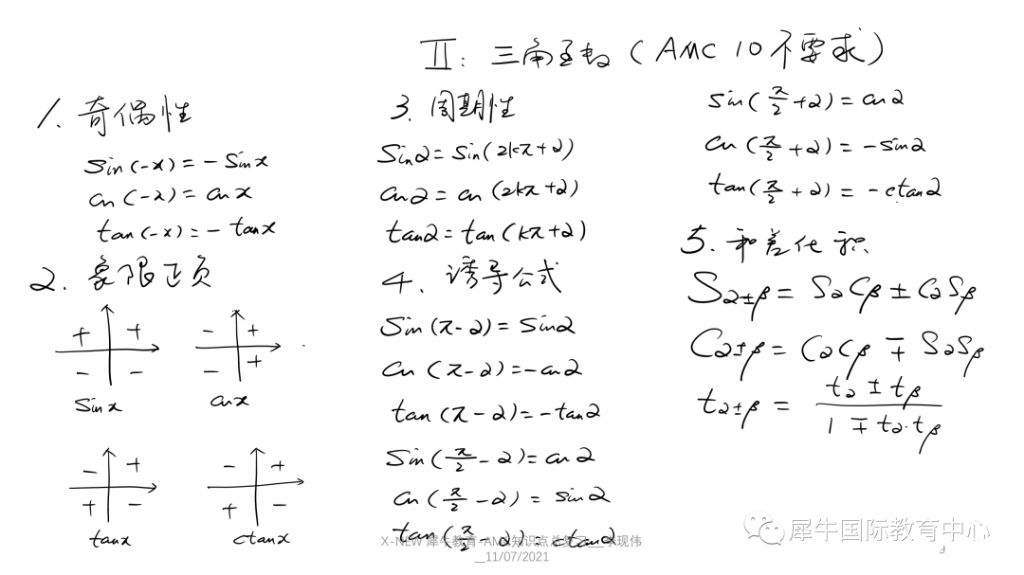 II: 三角函数 (AMC 10 不要求)
1. 奇偶性
sin(-x) = -sinx
cos(-x) = cosx
tan(-x) = -tanx
2. 象限正负
+ +
- -
sinx
- +
- +
cosx
- +
+ -
tanx
- +
+ -
ctanx
3. 周期性
sinα = sin(2kπ+α)
cosα = cos(2kπ+α)
tanα = tan(kπ+α)
4. 诱导公式
sin(π-α) = sinα
cos(π-α) = -cosα
tan(π-α) = -tanα
sin(π/2-α) = cosα
cos(π/2-α) = sinα
tan(π/2-α) = ctanα
sin(π/2+α) = cosα
cos(π/2+α) = -sinα
tan(π/2+α) = -ctanα
5. 和差化积
Sα±β = SαCβ ± CαSβ
Cα±β = CαCβ ∓ SαSβ
tα±β = (tα ± tβ)/(1 ∓ tα·tβ)
X-NEW 犀牛教育-AMC知识点总复习__李现伟
__11/07/2021
犀牛国际教育中心